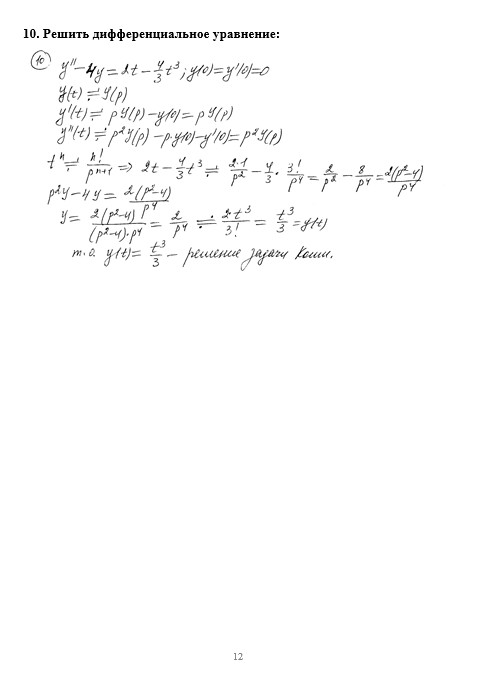 10. Решить дифференциальное уравнение:
⑩ y'' - 4y = 2t - 4/3 t³; y(0) = y'(0) = 0
y(t) ≓ Y(p)
y'(t) ≓ pY(p) - y(0) = pY(p)
y''(t) ≓ p²Y(p) - p·y(0) - y'(0) = p²Y(p)
tⁿ ≓ n!/pⁿ⁺¹ ⇒ 2t - 4/3 t³ ≓ 2·1/p² - 4/3 · 3!/p⁴ = 2/p² - 8/p⁴ = 2(p²-4)/p⁴
p²Y - 4Y = 2(p²-4)/p⁴
Y = 2(p²-4)/((p²-4)·p⁴) = 2/p⁴ ≓ 2·t³/3! = t³/3 = y(t)
т.о. y(t) = t³/3 - решение задачи Коши.
12